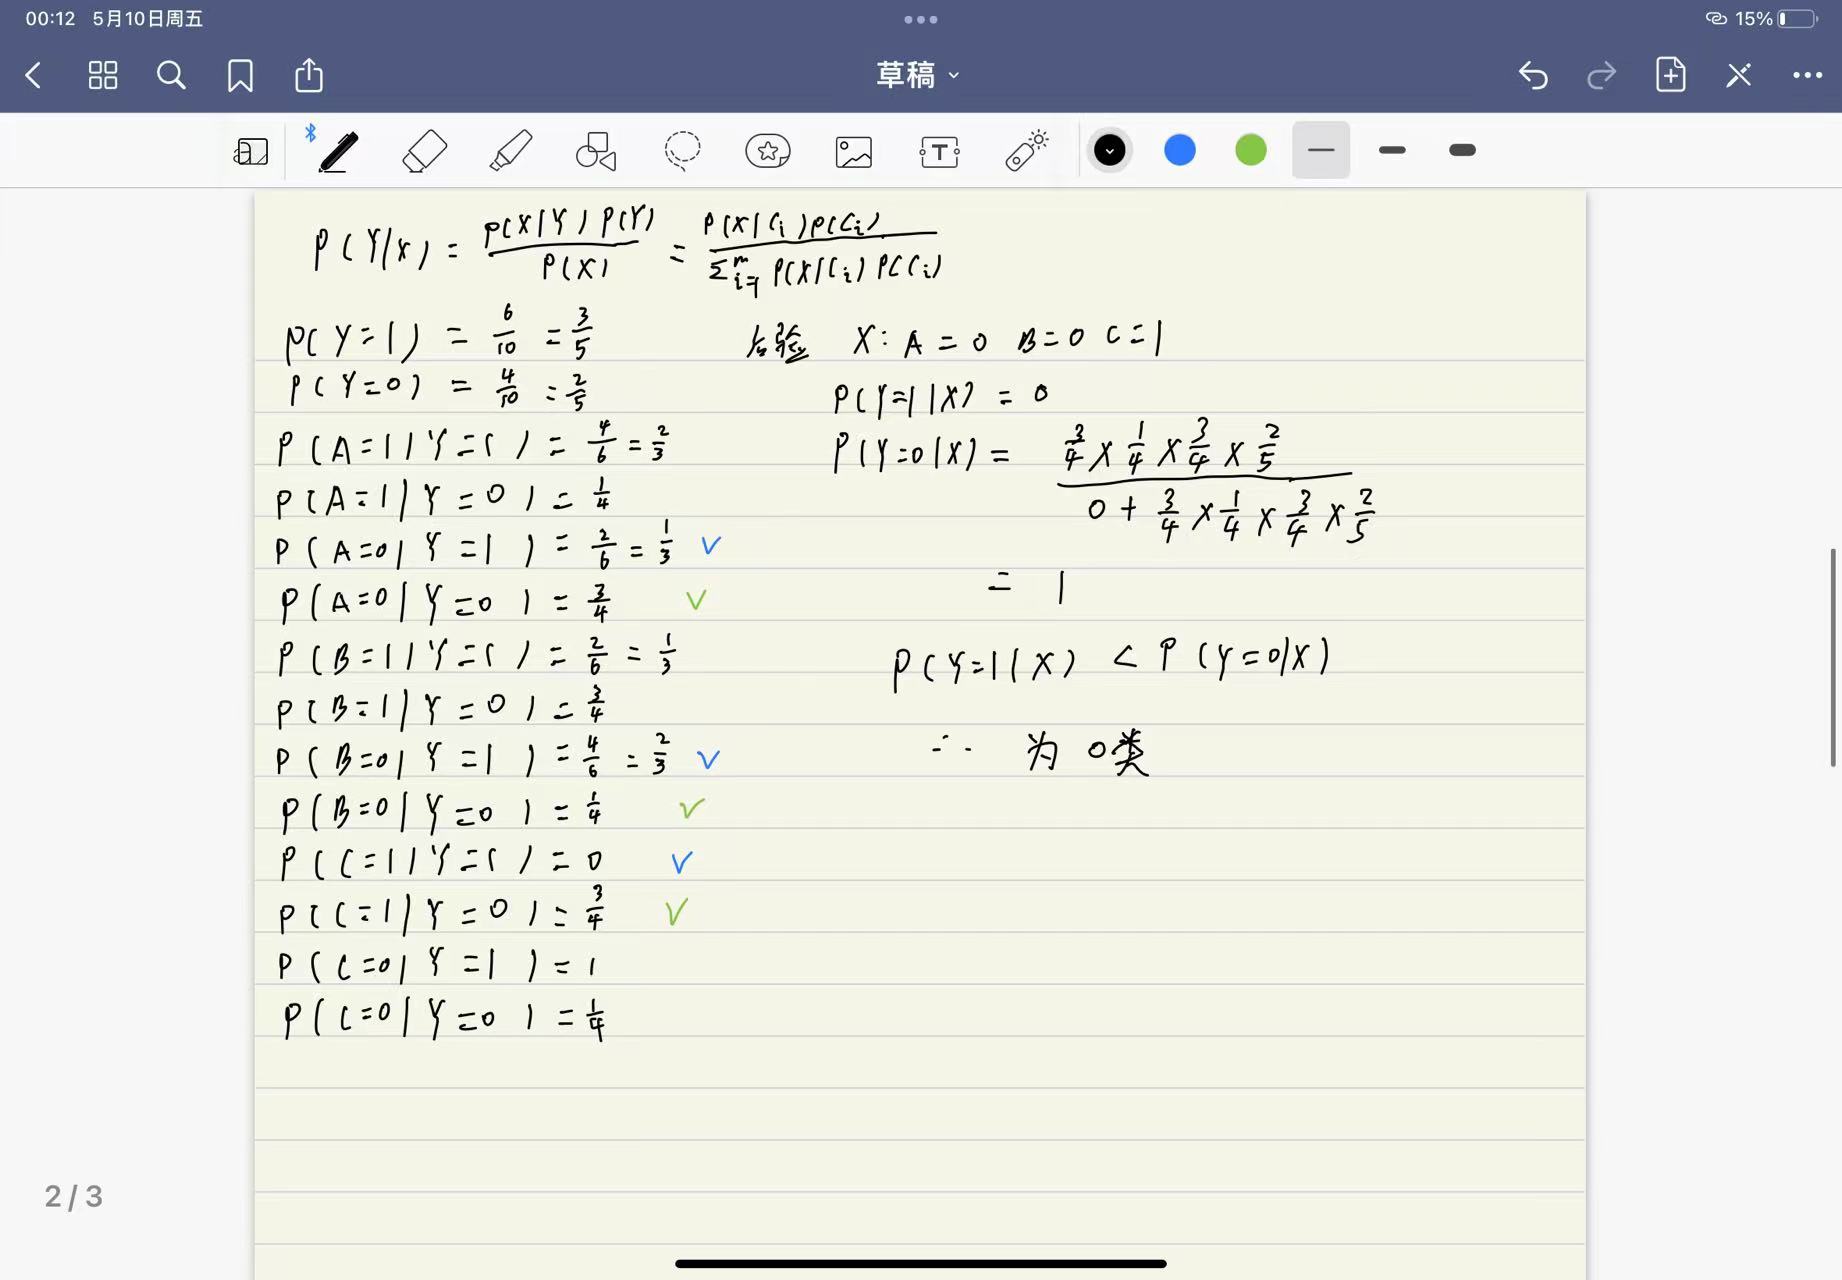 00:12 5月10日周五
15%
草稿
P(Y|X) = P(X|Y)P(Y) / P(X) = P(X|Ci)P(Ci) / Σᵐᵢ₌₁ P(X|Ci)P(Ci)
P(Y=1) = 6/10 = 3/5
P(Y=0) = 4/10 = 2/5
P(A=1|Y=1) = 4/6 = 2/3
P(A=1|Y=0) = 1/4
P(A=0|Y=1) = 2/6 = 1/3 ✓
P(A=0|Y=0) = 3/4 ✓
P(B=1|Y=1) = 2/6 = 1/3
P(B=1|Y=0) = 3/4
P(B=0|Y=1) = 4/6 = 2/3 ✓
P(B=0|Y=0) = 1/4 ✓
P(C=1|Y=1) = 0 ✓
P(C=1|Y=0) = 3/4 ✓
P(C=0|Y=1) = 1
P(C=0|Y=0) = 1/4
后验 X: A=0 B=0 C=1
P(Y=1|X) = 0
P(Y=0|X) = 3/4 × 1/4 × 3/4 × 2/5 / 0 + 3/4 × 1/4 × 3/4 × 2/5
= 1
P(Y=1|X) < P(Y=0|X)
∴ 为 0类
2/3